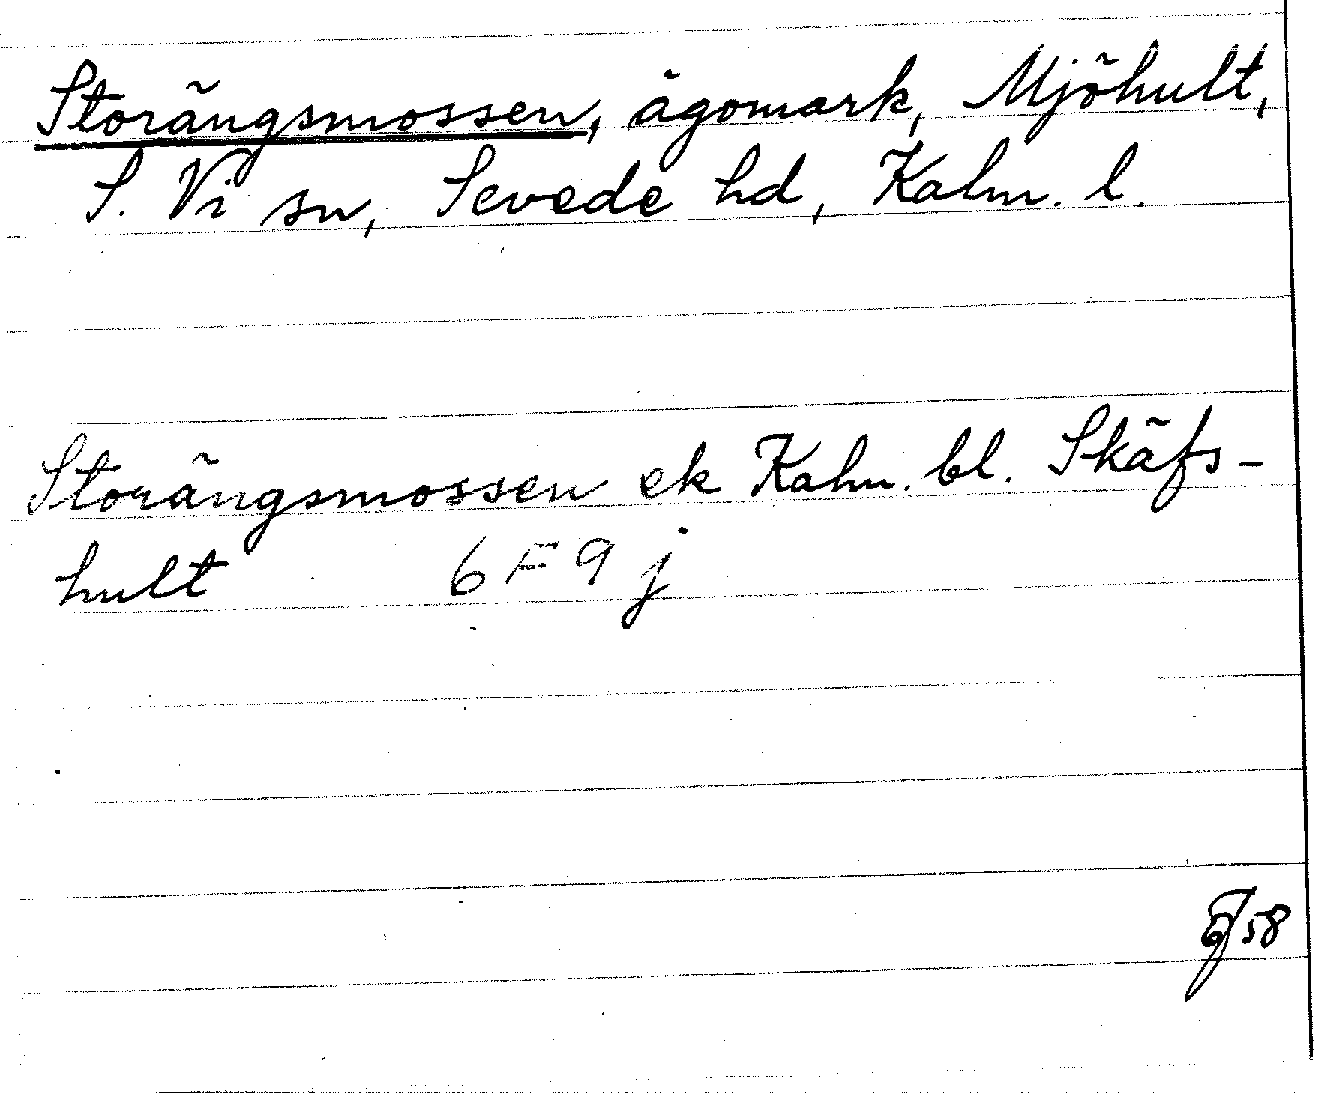 Storängsmossen, ägomark, Mjöhult,
S. Vi sn, Sevede hd, Kalm. l.
Storängsmossen ek Kalm. bl. Skäfs-
hult 6F9j
58